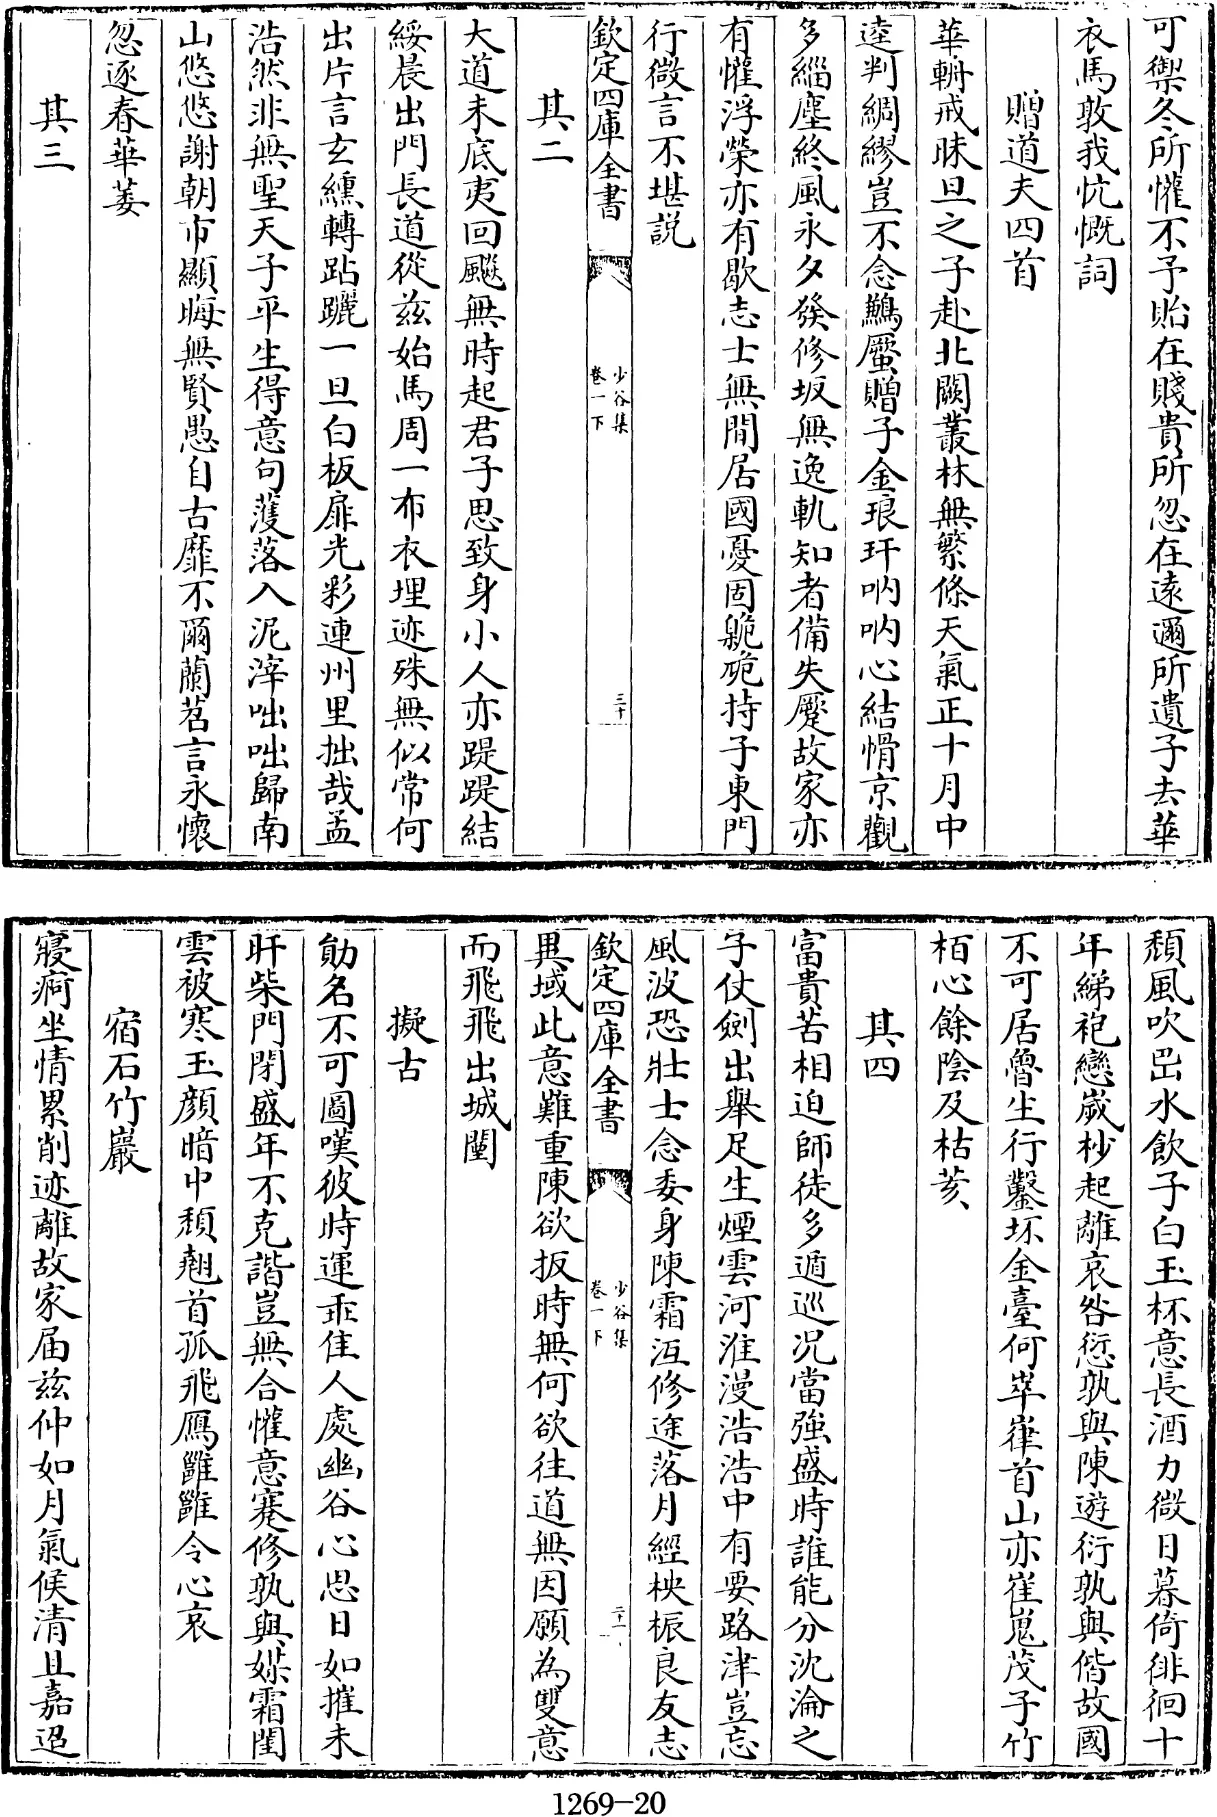 可禦冬所懽不予貽在賤貴所忽在遠邇所遺子去華
衣馬敦我忼慨詞
贈道夫四首
華輈戒昧旦之子赴北闕叢林無繁條天氣正十月中
逵判綢繆豈不念鷦䳟贈子金琅玕吶吶心結愲京觀
多緇塵終風永夕發修坂無逸軌知者備失蹷故家亦
有懽浮榮亦有歇志士無閒居國憂固臲硊持子東門
行微言不堪説
欽定四庫全書
少谷集
卷一下
三十
其二
大道未底夷回飈無時起君子思致身小人亦踶踶結
綏晨出門長道從兹始馬周一布衣埋迹殊無似常何
出片言玄纁轉跕躧一旦白板扉光彩連州里拙哉孟
浩然非無聖天子平生得意句濩落入泥滓咄咄歸南
山悠悠謝朝市顯晦無賢愚自古靡不爾蘭苕言永懷
忽逐春華萎
其三
頽風吹巴水飲子白玉杯意長酒力微日暮倚徘徊十
年綈袍戀歲杪起離哀咎愆孰與陳遊衍孰與偕故國
不可居魯生行鑿坏金臺何崒嵂首山亦崔嵬茂子竹
栢心餘陰及枯荄
其四
富貴苦相迫師徒多遁巡况當強盛時誰能分沈淪之
子仗劍出舉足生煙雲河淮漫浩浩中有要路津豈忘
風波恐壯士念委身陳霜沍修途落月經枎桭良友志
欽定四庫全書
少谷集
卷一下
三十一
異域此意難重陳欲扳時無何欲往道無因願為雙意
而飛飛出城闉
擬古
勛名不可圖嘆彼時運乖隹人處幽谷心思日如摧未
旰柴門閉盛年不克諧豈無合懽意蹇修孰與媒霜閨
雲被寒玉顔暗中頽翹首孤飛鴈雝雝令心哀
宿石竹巖
寢痾坐情累削迹離故家届兹仲如月氣候清且嘉迢
1269-20